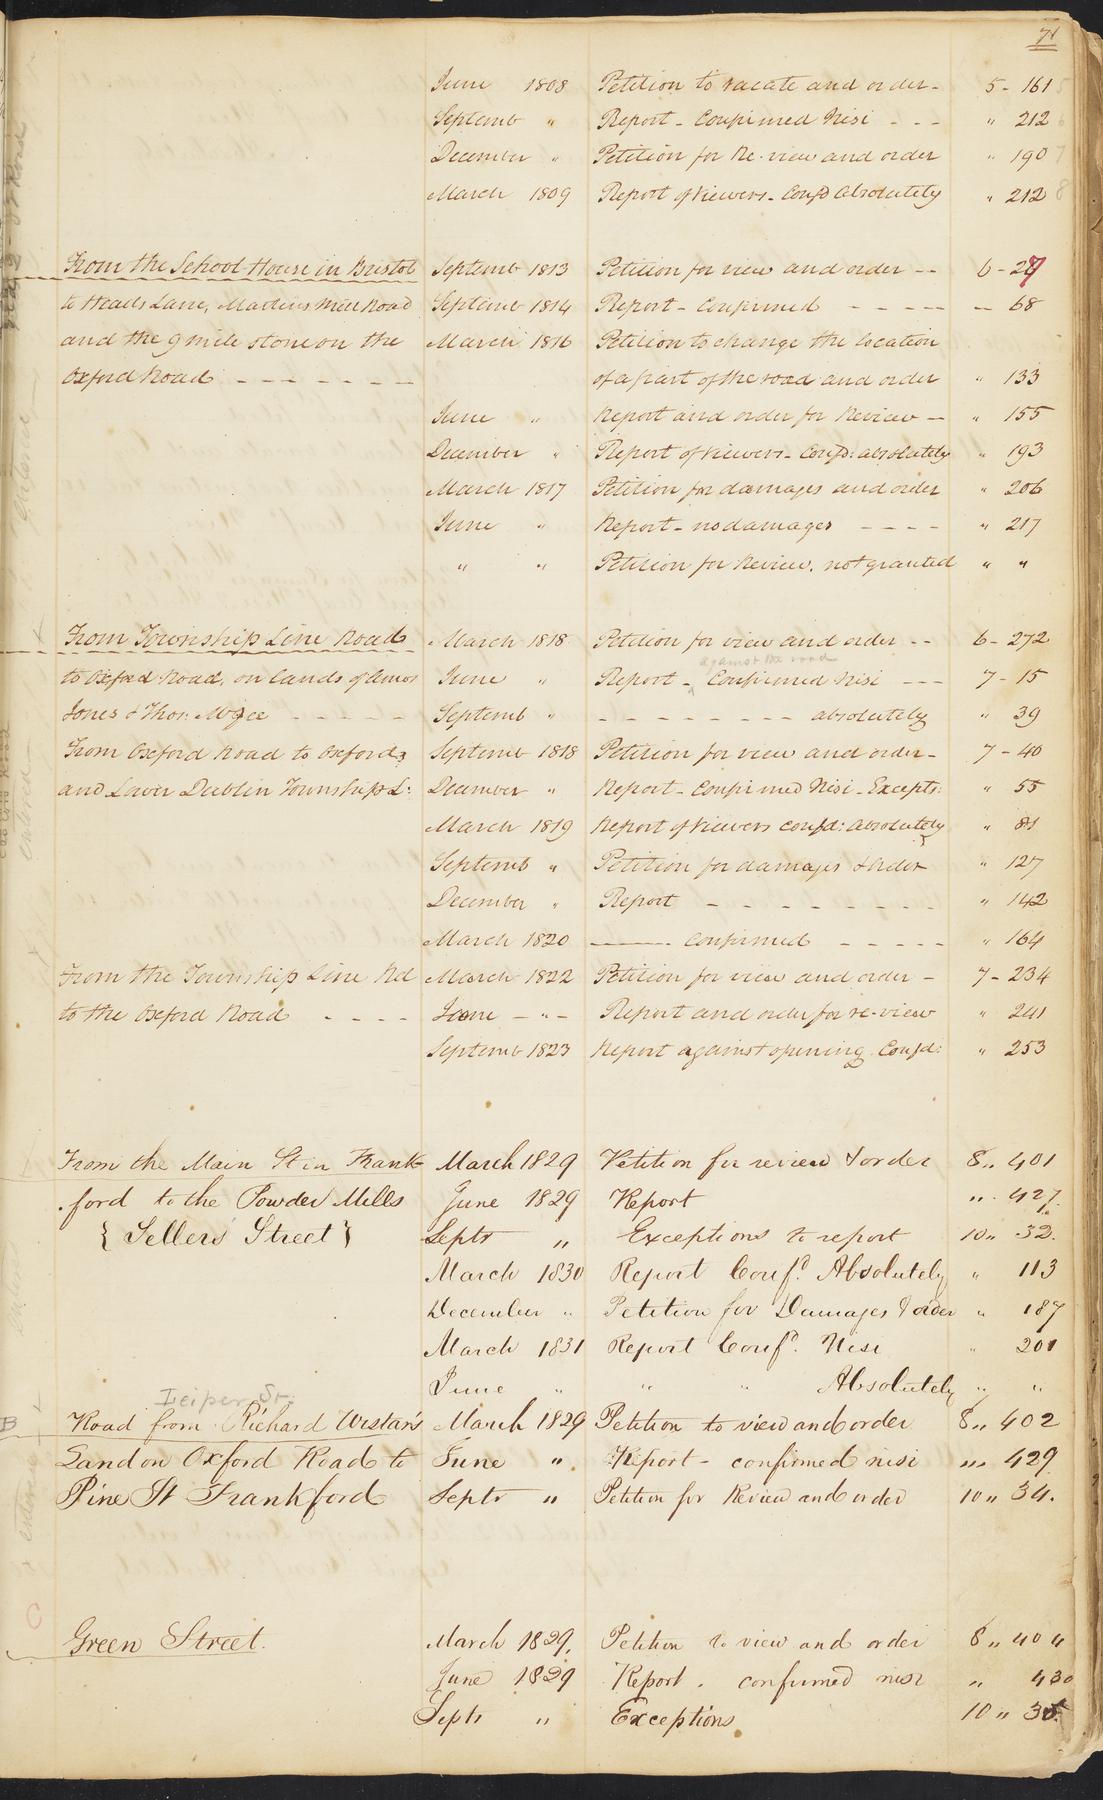 71
June 1808 Petition to vacate and order - 5 - 161
Septemb " Report - Confirmed Nisi - - - " 212
December " Petition for Re-view and order " 190
March 1809 Report of Viewers - Confd Absolutely " 212
From the School House in Bristol Septemb 1813 Petition for view and order -- 6 - 27
to Heads Lane, Martins Mill Road Septemb 1814 Report - Confirmed - - - - - -- 68
and the 9 mile stone on the March 1816 Petition to change the location
Oxford Road - - - - - - - of a part of the road and order " 133
June " Report and order for Review - " 155
December " Report of Viewers - Confd: absolutely " 193
March 1817 Petition for damages and order " 206
June " Report - no damages - - - - " 217
" " Petition for Review, not granted " "
From Township Line Road March 1818 Petition for view and order -- 6 - 272
against the road
to Oxford Road, on lands of Amos June " Report - Confirmed Nisi --- 7 - 15
Jones & Thos: McGee - - - - - Septemb " - - - - - - - - absolutely " 39
From Oxford Road to Oxford & Septemb 1818 Petition for view and order - 7 - 40
and Lower Dublin Township L: December " Report - Confirmed Nisi - Excepts: " 55
March 1819 Report of Viewers confd: absolutely " 81
Septemb " Petition for damages & order " 127
December " Report - - - - - - - - - " 142
March 1820 ——— confirmed - - - - - " 164
From the Township Line Rd March 1822 Petition for view and order - 7 - 234
to the Oxford Road - - - - June - " - Report and order for re-view " 241
Septemb 1823 Report against opening Confd: " 253
From the Main St in Frank March 1829 Petition for review & order 8 " 401
ford to the Powder Mills June 1829 Report " 427.
{ Sellers' Street } Septr " Exceptions to report 10 " 32.
March 1830 Report Confd. Absolutely " 113
December " Petition for Damages & order " 187
March 1831 Report Confd. Nisi " 201
June " " " Absolutely " "
Leiper St.
B Road from Richard Wistar's March 1829 Petition to view and order 8 " 402
Land on Oxford Road to June " Report - confirmed nisi " 429
Pine St Frankford Septr " Petition for Review and order 10 " 34.
C
Green Street. March 1829. Petition to view and order 8 " 404
June 1829 Report . confirmed nisi " 430
Septr " Exceptions 10 " 35.